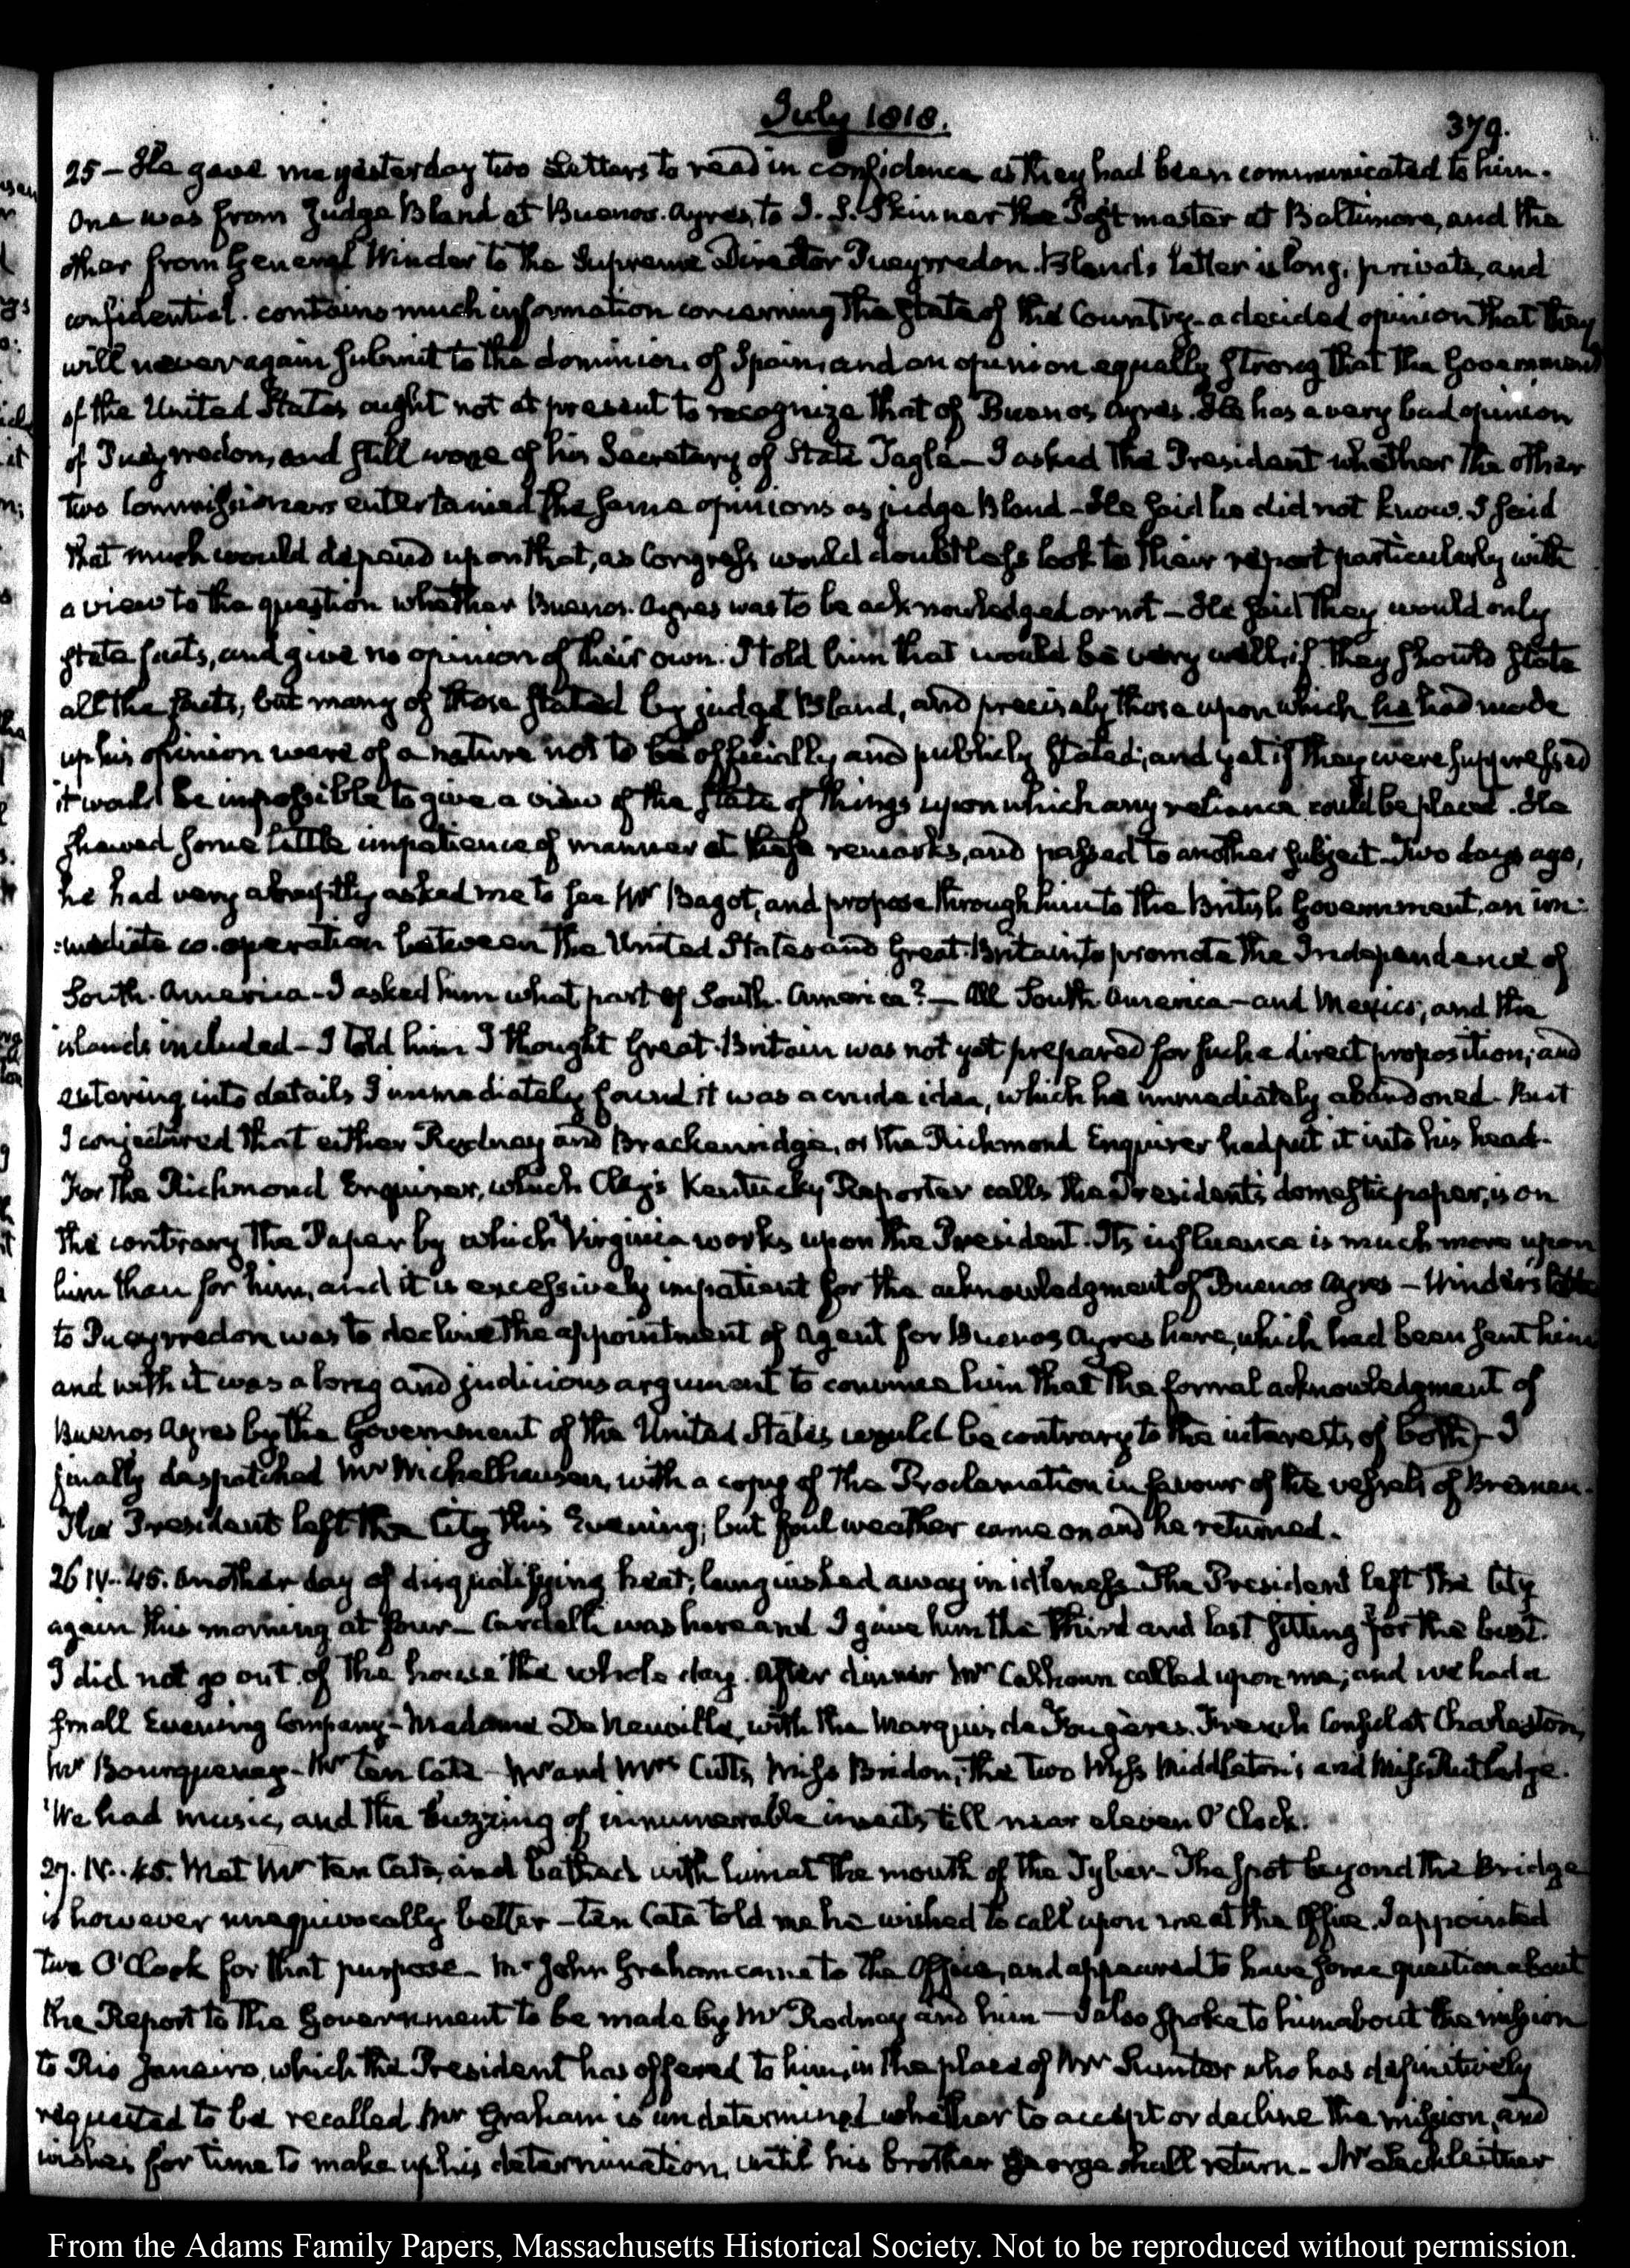 July 1818.
379.
25 - He gave me yesterday two Letters to read in confidence as they had been communicated to him.
One was from Judge Bland at Buenos-Ayres, to J. S. Skinner the Postmaster at Baltimore, and the
other from General Winder to the Supreme Director Pueyrredon. Bland's letter is long, private, and
confidential. contains much information concerning the state of the Country - a decided opinion that they
will never again submit to the dominion of Spain, and an opinion equally strong that the Government
of the United States ought not at present to recognize that of Buenos Ayres. He has a very bad opinion
of Pueyrredon, and still worse of his Secretary of State Tagle - I asked the President whether the other
two Commissioners entertained the same opinions as judge Bland - He said he did not know. I said
that much would depend upon that, as Congress would doubtless look to their report particularly with
a view to the question whether Buenos-Ayres was to be acknowledged or not - He said they would only
state facts, and give no opinion of their own. I told him that would be very well, if they should state
all the facts; but many of those stated by judge Bland, and precisely those upon which he had made
up his opinion were of a nature not to be officially and publicly stated; and yet if they were suppressed
it would be impossible to give a view of the state of things upon which any reliance could be placed. He
shewed some little impatience of manner at these remarks, and passed to another subject - Two days ago,
he had very abruptly asked me to see Mr Bagot, and propose through him to the British Government, an im-
:mediate co-operation between the United States and Great-Britain to promote the Independence of
South-America - I asked him what part of South-America? - All South America - and Mexico; and the
islands included - I told him I thought Great-Britain was not yet prepared for such a direct proposition; and
entering into details I immediately found it was a crude idea, which he immediately abandoned. But
I conjectured that either Rodney and Brackenridge, or the Richmond Enquirer had put it into his head.
For the Richmond Enquirer, which Clay's Kentucky Reporter calls the President's domestic paper, is on
the contrary the Paper by which Virginia works upon the President. Its influence is much more upon
him than for him, and it is excessively impatient for the acknowledgment of Buenos Ayres - Winder's letter
to Pueyrredon was to decline the appointment of Agent for Buenos Ayres here, which had been sent him
and with it was a long and judicious argument to convince him that the formal acknowledgment of
Buenos Ayres by the Government of the United States would be contrary to the interests of both - I
finally despatched Mr Wichelhausen, with a copy of the Proclamation in favour of the vessels of Bremen.
The President left the City this Evening; but foul weather came on and he returned.
26 IV. 45. Another day of disqualifying heat; languished away in idleness. The President left the City
again this morning at four - Cardelli was here and I gave him the third and last sitting for the bust.
I did not go out of the house the whole day. After dinner Mr Calhoun called upon me; and we had a
small Evening Company - Madame De Neuville, with the Marquis de Fougères. French Consul at Charleston,
Mr Bourqueney - Mr ten Cate - Mr and Mrs Cutts, Miss Bridon, the two Miss Middleton's and Miss Rutledge.
We had music, and the buzzing of innumerable insects till near eleven O'Clock.
27. IV. 45. Met Mr ten Cate, and bathed with him at the mouth of the Tyber - The spot beyond the Bridge
is however unequivocally better - ten Cate told me he wished to call upon me at the Office. I appointed
two O'Clock for that purpose - Mr John Graham came to the Office, and appeared to have some question about
the Report to the Government to be made by Mr Rodney and him - I also spoke to him about the mission
to Rio Janeiro, which the President has offered to him, in the place of Mr Sumter who has definitively
requested to be recalled. Mr Graham is undetermined whether to accept or decline the mission, and
wishes for time to make up his determination, until his brother George shall return - Mr Lechleitner
From the Adams Family Papers, Massachusetts Historical Society. Not to be reproduced without permission.